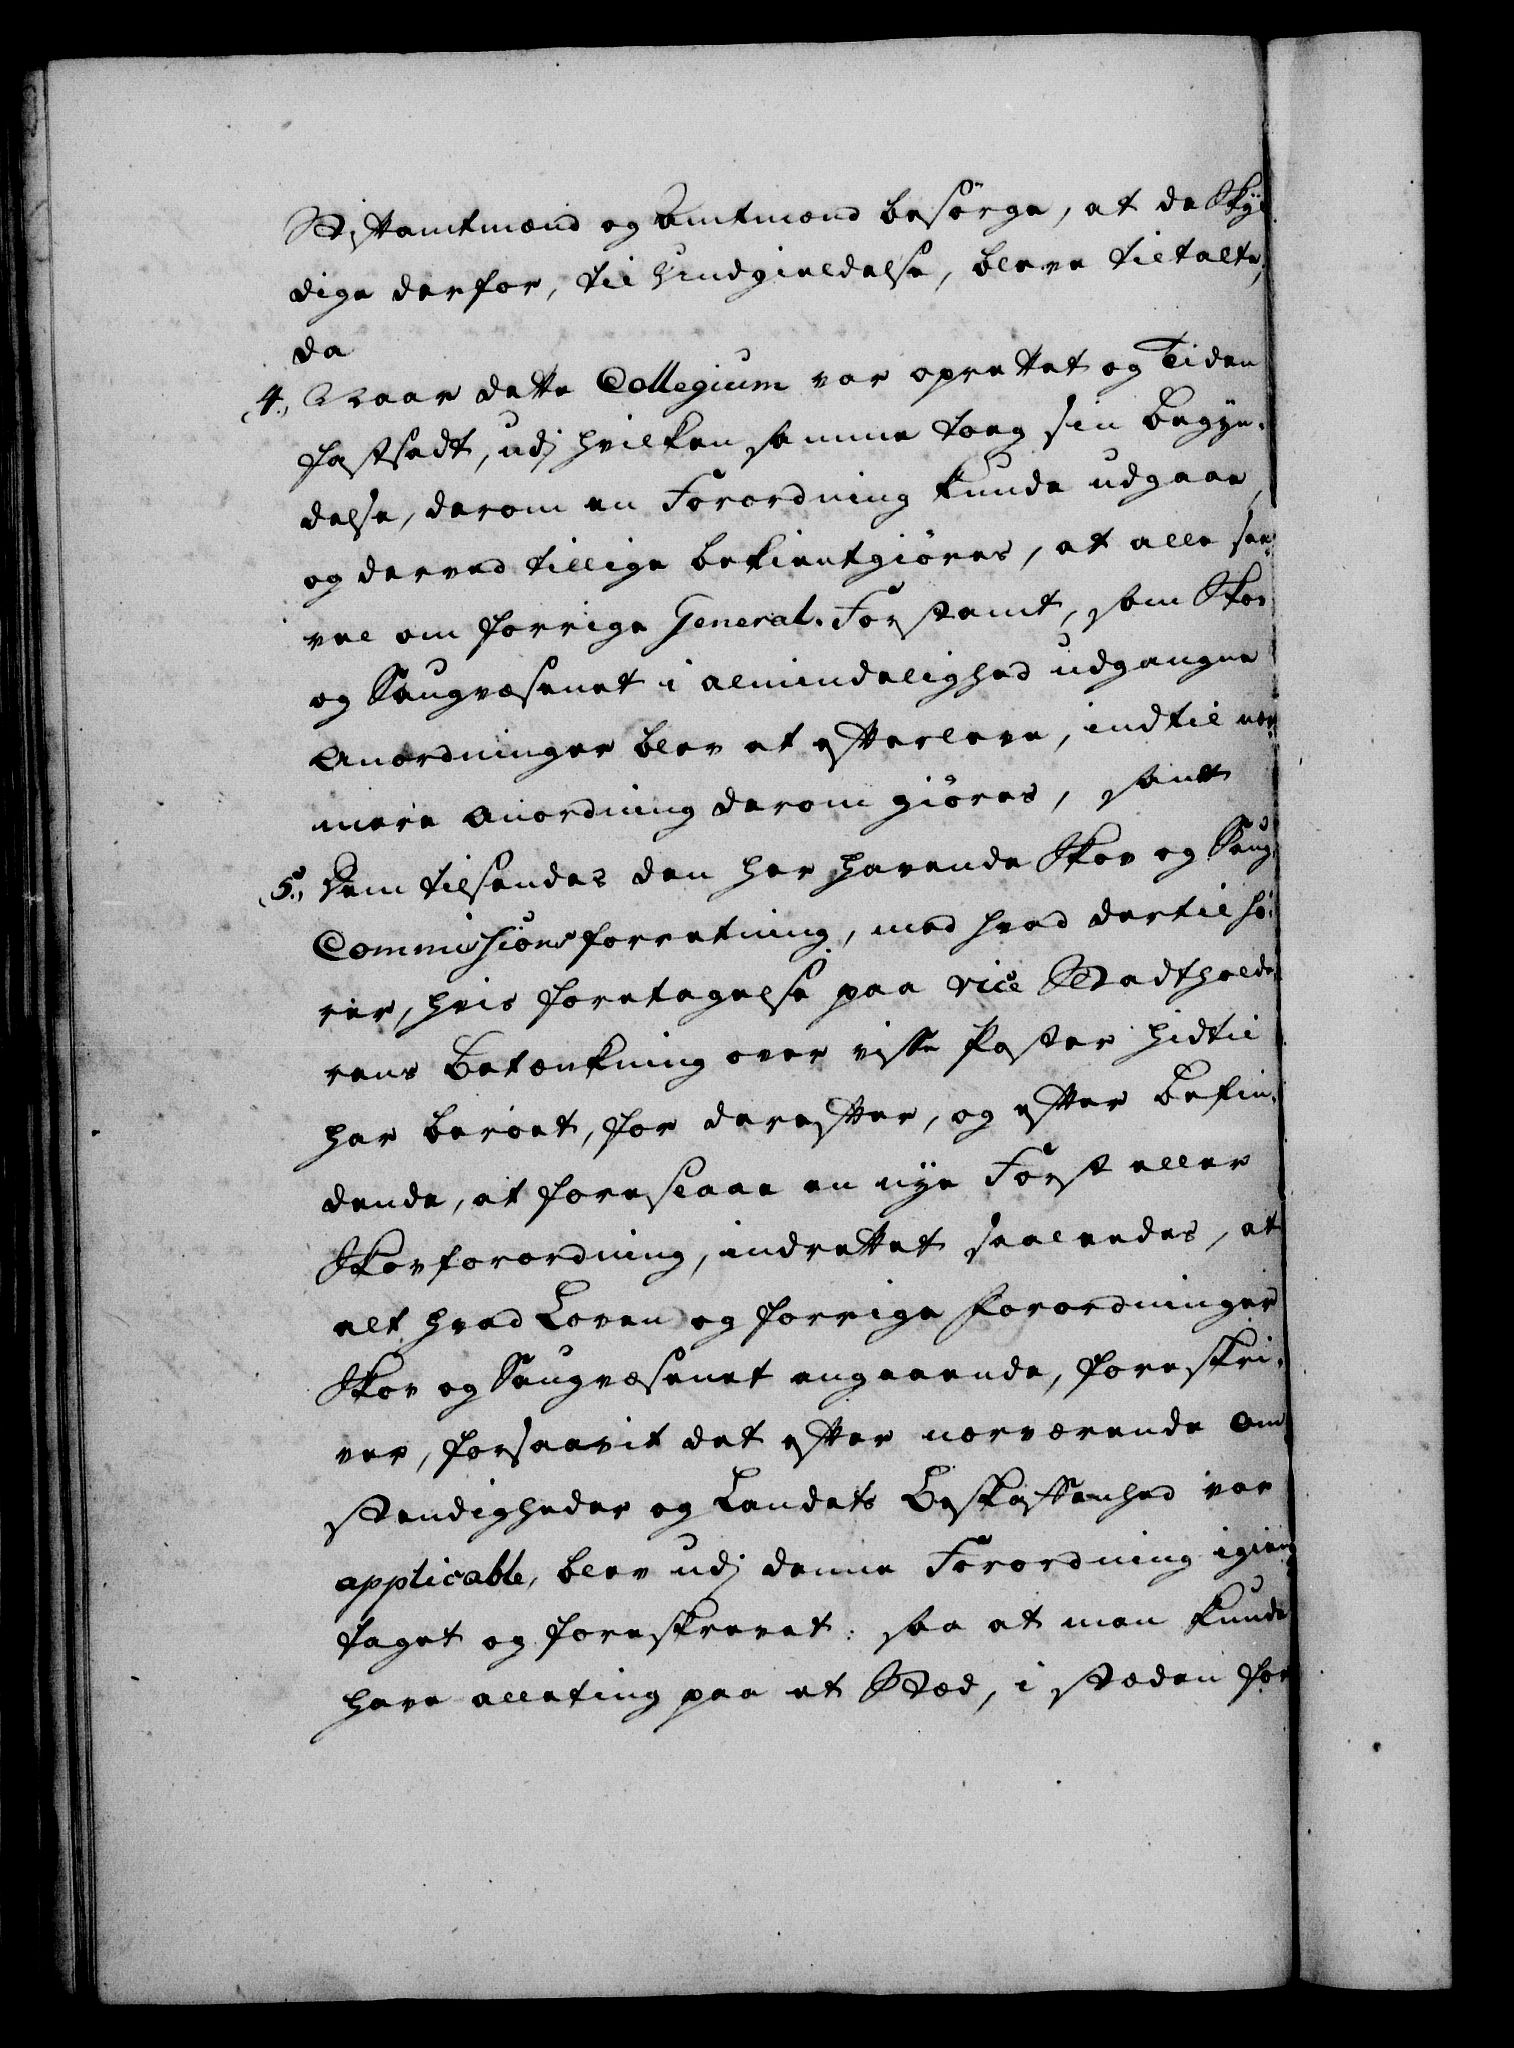 Stiftamtmænd og Amtmænd besörge, at de Skyl
dige derfor, til Undgieldelse, bleve tiltalte;
da
4., Naar dette Collegium var oprettet og Tiden
fastsadt, udj hvilken samme tog sin begyn-
delse, derom en Forordning kunde udgaae,
og derved tillige bekientgiöres, at alle saa
vel om forrige General-Forstamt, som Skov
og Saugvæsenet i almindelighed udgangne
Anordninger blev at efterleve, indtil nær
mere Anordning derom giöres, samt
5., Dem tilsendes den her havende Skov og Saug-
Commissionsforretning, med hvad dertil hö-
rer, hvis foretagelse paa vice Stadtholde-
rens Betænkning over visse Poster hidtil
har beroet, for derefter, og efter befin-
dende, at foreslaae en nye Forst eller
Skovforordning, indrettet saaledes, at
alt hvad Loven og forrige Forordninger
Skov og Saugvæsenet angaaende, foreskri-
ver, forsaavit det efter nærværende Om
stendigheder og Landets Beskaffenhed var
applicable, blev udj denne Forordning igien
taget og foreskrevet: saa at man kunde
have alleting paa et Stæd, i stæden for